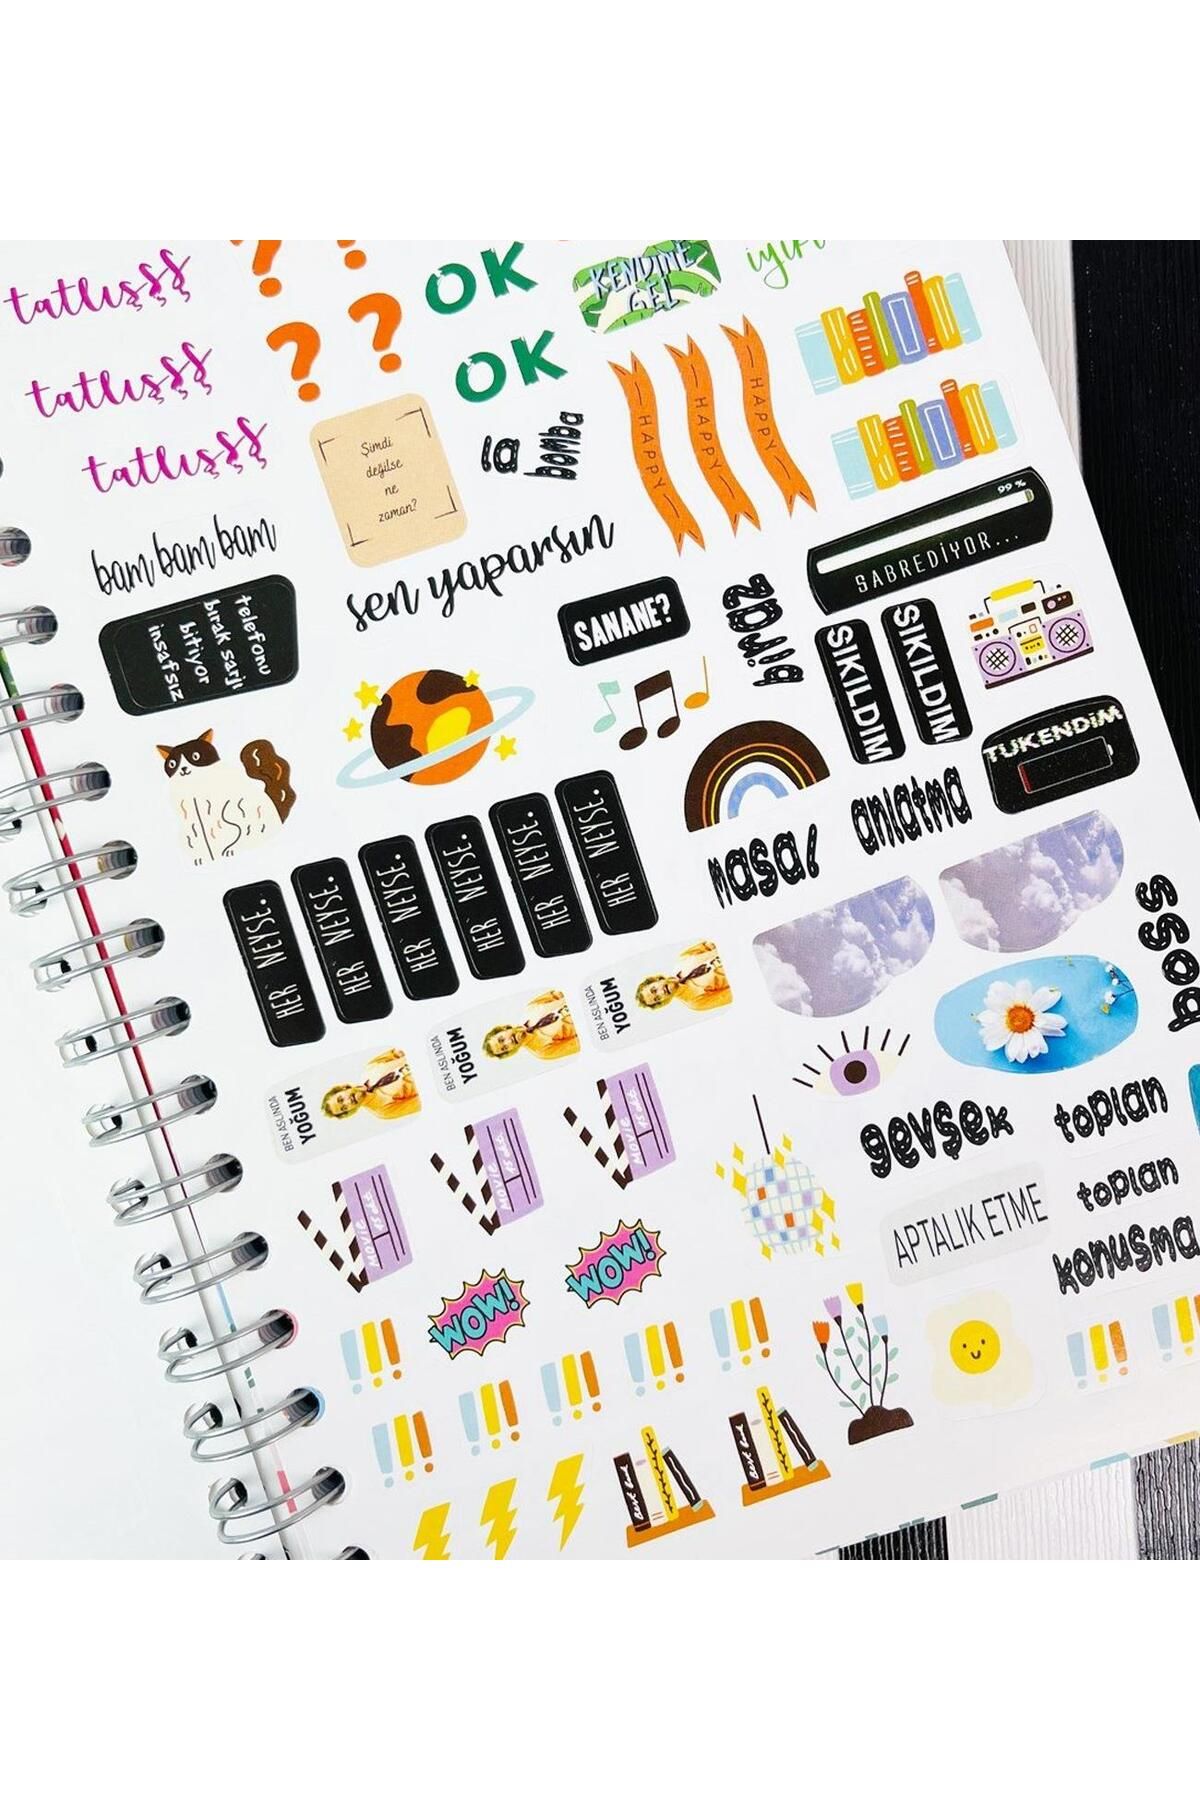 tatlışşş
OK
KENDİNE
GEL
tatlışşş
OK
tatlışşş
Şimdi
değilse
ne
zaman?
la
bomba
HAPPY
HAPPY
HAPPY
99 %
SABREDİYOR...
bam bam bam
sen yaparsın
telefonu
bırak sarjı
bitiyor
insafsız
SANANE?
biraz
SIKILDIM
SIKILDIM
TÜKENDİM
HER NEYSE.
HER NEYSE.
HER NEYSE.
HER NEYSE.
HER NEYSE.
HER NEYSE.
masal
anlatma
boss
BEN ASLINDA
YOĞUM
BEN ASLINDA
YOĞUM
BEN ASLINDA
YOĞUM
MOVIE
MOVIE
MOVIE
gevşek
toplan
toplan
APTALIK ETME
konuşma
WOW!
WOW!